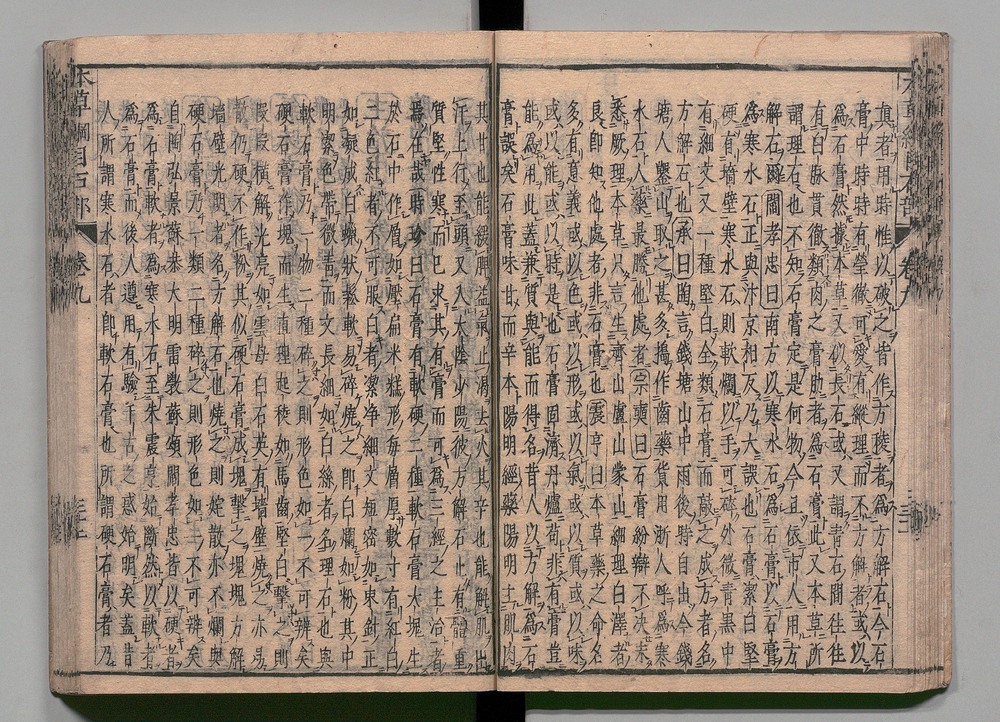 真者用時惟以破之皆作方稜者爲方解石今石
膏中時時有瑩徹可愛有縱理而不方解者或以
爲石膏然據本草又似長石或又謂青石間往往
有白脉貫徹類肉之膏肪者爲石膏此又本草所
謂理石也不知石膏定是何物今且依市人用方
解石爾閻孝忠曰南方以寒水石爲石膏以石膏
爲寒水石正與汴京相反乃大誤也石膏潔白堅
硬有墻壁寒水石則軟爛以手可碎外微青黑中
有細文又一種堅白全類石膏而敲之成方者名
方解石也承曰陶言錢塘山中雨後時自出今錢
塘人鑿山取之甚多搗作齒藥貨用浙人呼爲寒
水石入藥最勝他處者宗奭曰石膏紛辯不決未
悉厥理本草只言生齊山盧山蒙山細理白澤者
良即知他處者非石膏也震亨曰本草藥之命名
多有意義或以色或以形或以氣或以質或以味
或以能或以時是也石膏固濟丹爐苟非有膏豈
能爲用此蓋兼質與能而得名昔人以方解爲石
膏誤矣石膏味甘而辛本陽明經藥陽明主肌肉
其甘也能緩脾益氣止渴去火其辛也能解肌出
汗上行至頭又入太陰少陽彼方解石止有體重
質堅性寒而已求其有膏而可爲三經之主治者
焉在哉時珍曰石膏有軟硬二種軟石膏大塊生
於石中作層如壓扁米糕形每層厚數寸有紅白
二色紅者不可服白者潔淨細文短密如束針正
如凝成白蠟狀鬆軟易碎燒之即白爛如粉其中
明潔色帶微青而文長細如白絲者名理石也與
軟石膏乃一物二種碎之則形色如一不可辨矣
硬石膏作塊而生直理起稜如馬齒堅白擊之則
段段橫解光亮如雲母白石英有墻壁燒之亦易
散仍硬不作粉其似硬石膏成塊擊之塊塊方解
墻壁光明者名方解石也燒之則姹散亦不爛與
硬石膏乃一類二種碎之則形色如一不可辨矣
自陶弘景蘇恭大明雷斅蘇頌閻孝忠皆以硬者
爲石膏軟者爲寒水石至朱震亨始斷然以軟者
爲石膏而後人遵用有驗千古之惑始明矣蓋昔
人所謂寒水石者即軟石膏也所謂硬石膏者乃
本草綱目石部 卷九